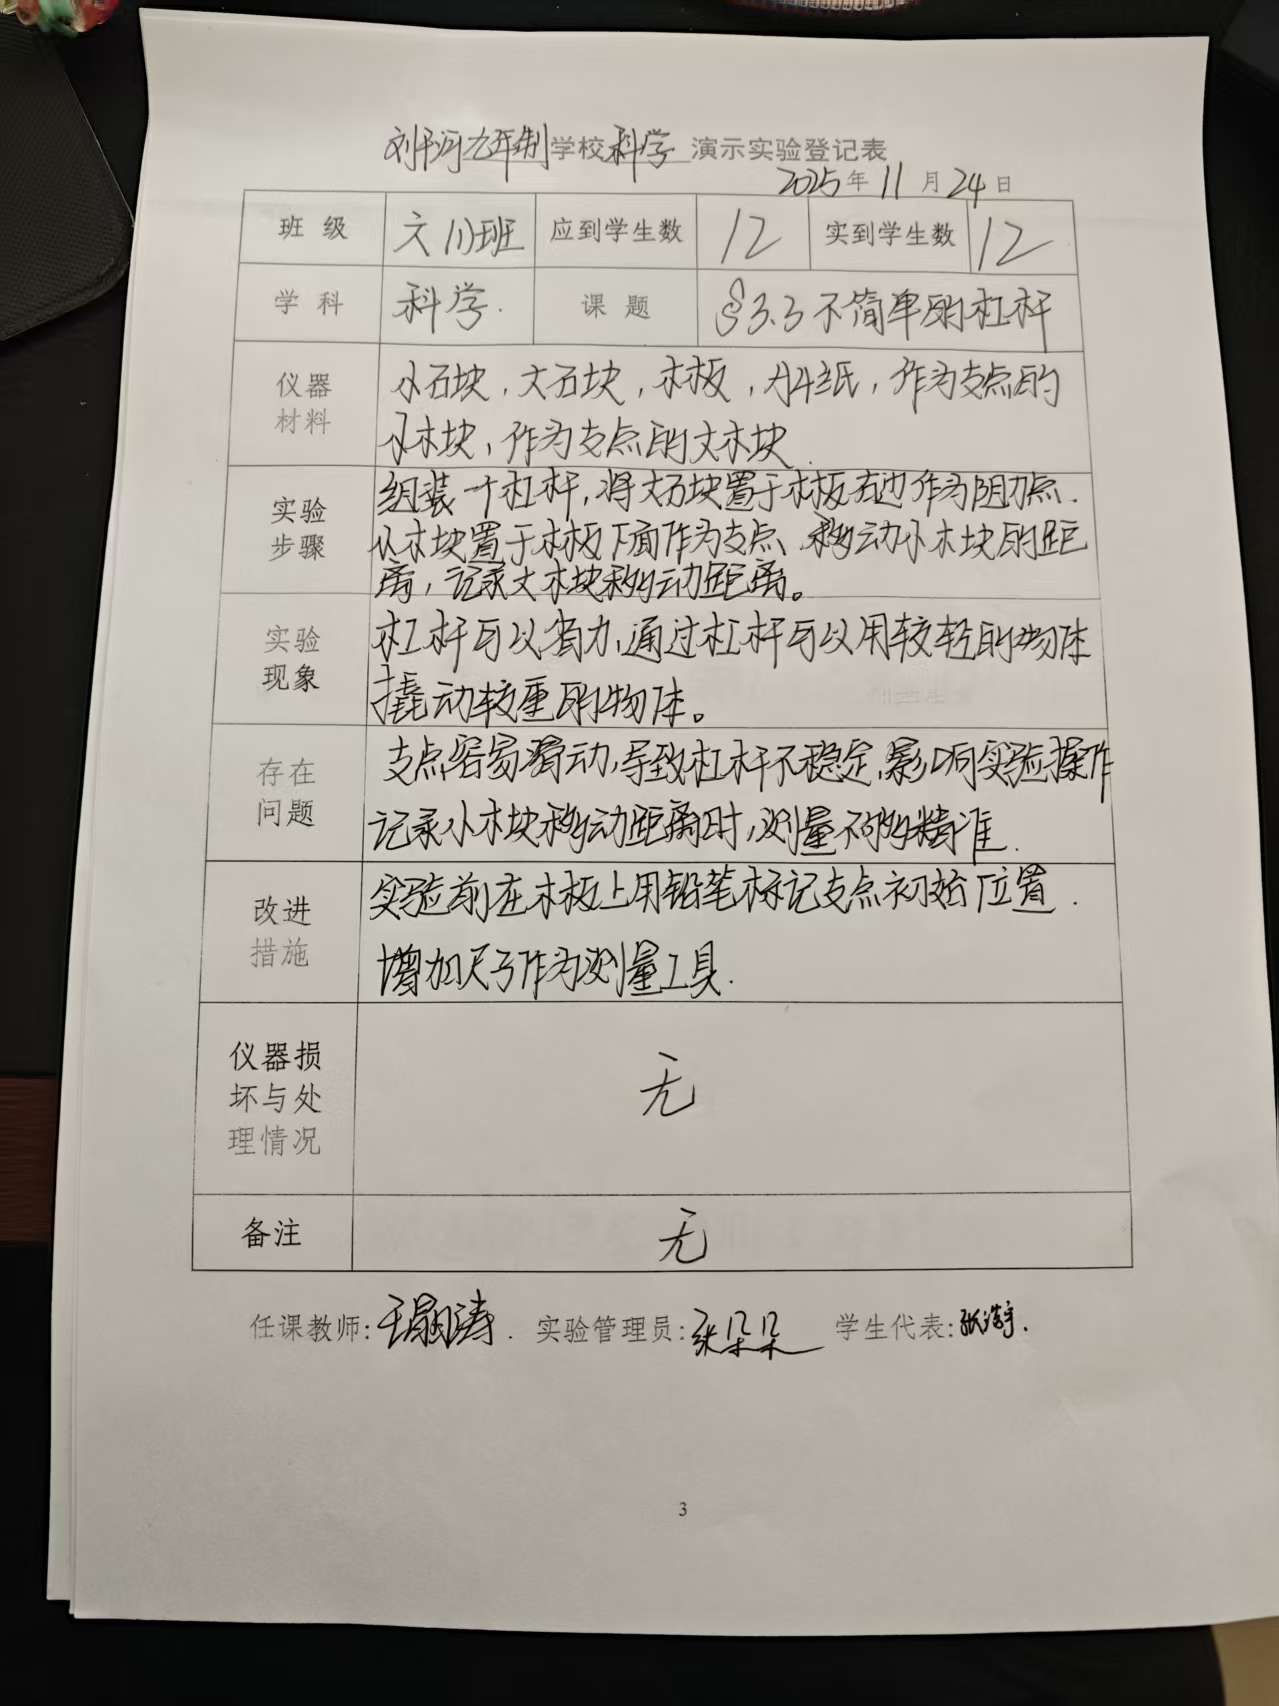 刘于河九年制学校科学 演示实验登记表
2025年11月24日
班级 六(1)班 应到学生数 12 实到学生数 12
学科 科学. 课题 §3.3不简单的杠杆
仪器材料 小石块,大石块,木板,砂纸,作为支点的
小木块,作为支点的大木块.
实验步骤 组装一个杠杆,将大石块置于木板右边作为阻力点.
小木块置于木板下面作为支点、移动小木块的距
离,记录大木块移动距离。
实验现象 杠杆可以省力,通过杠杆可以用较轻的物体
撬动较重的物体。
存在问题 支点容易滑动,导致杠杆不稳定,影响实验操作
记录小木块移动距离时,测量不够精准.
改进措施 实验前在木板上用铅笔标记支点初始位置.
增加尺子作为测量工具.
仪器损坏与处理情况 无
备注 无
任课教师: 实验管理员:张朵朵 学生代表:张浩宇.
3